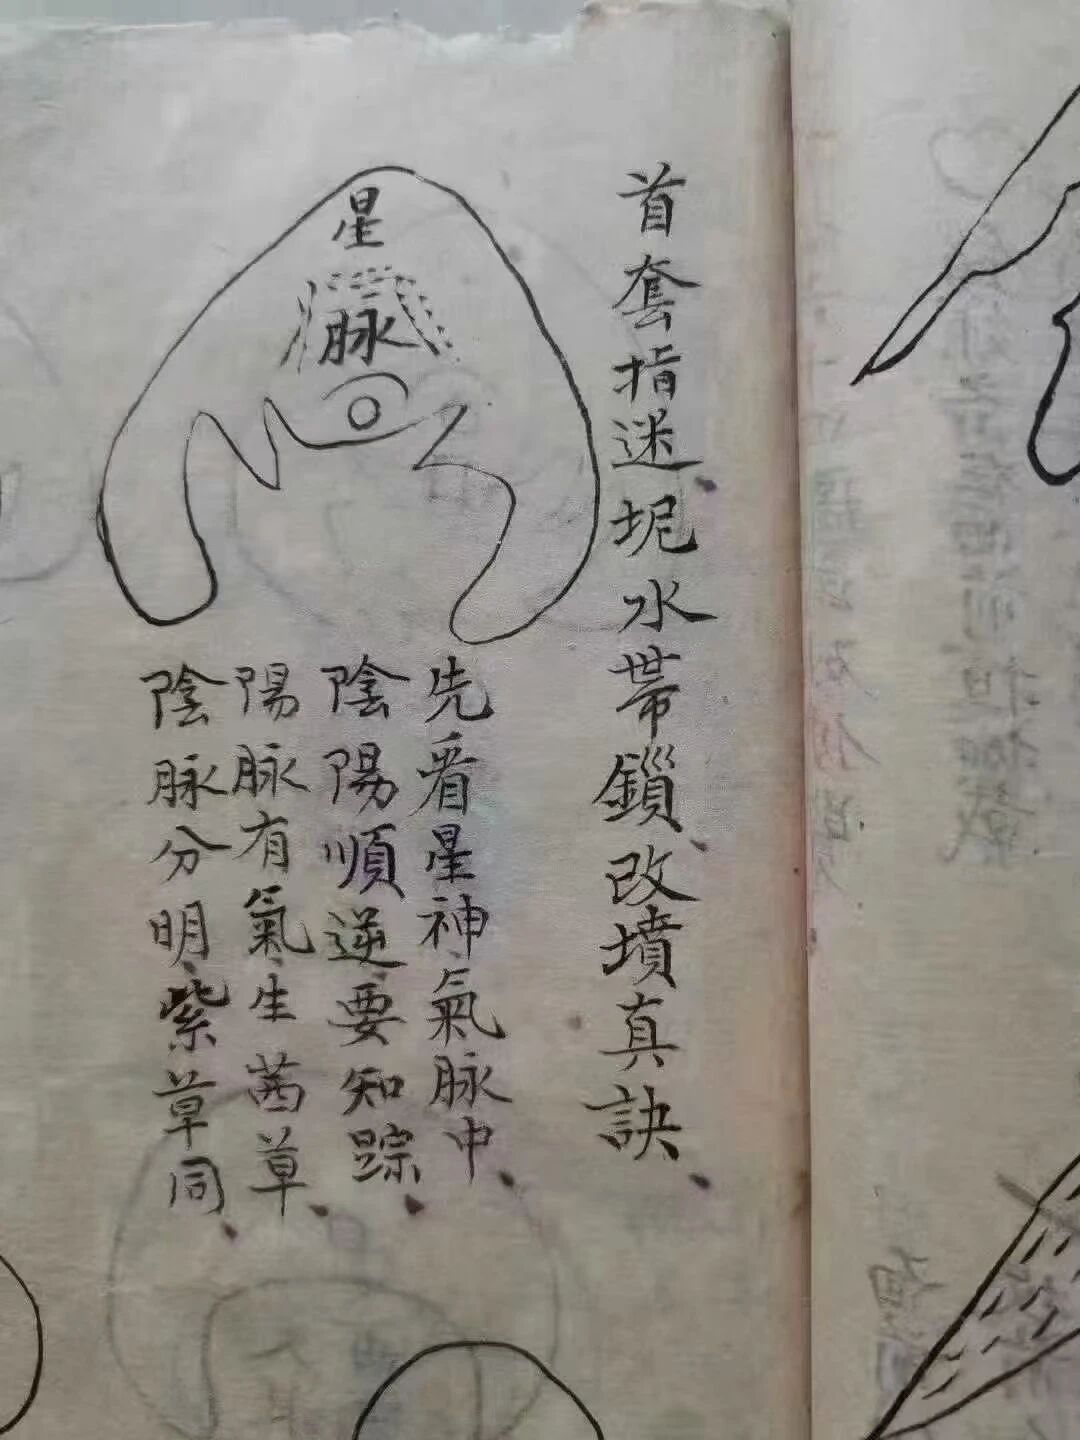 首套指迷坭水带鎖改墳真訣
星
脉
先看星神氣脉中
陰陽順逆要知踪
陽脉有氣生茜草
陰脉分明紫草同